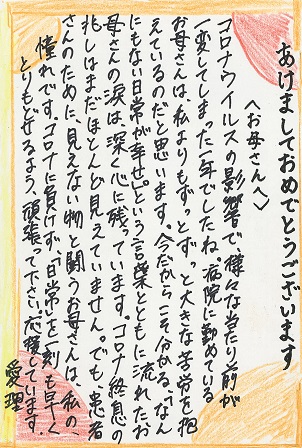 あけましておめでとうございます
〈お母さんへ〉
コロナウイルスの影響で、様々な当たり前が
一変してしまった一年でしたね。病院に勤めている
お母さんは、私よりもずっとずっと大きな苦労を抱
えているのだと思います。今だからこそ分かる。「なん
にもない日常が幸せ」という言葉とともに流れたお
母さんの涙は、深く心に残っています。コロナ終息の
兆しはまだほとんど見えていません。でも、患者
さんのために、見えない物と闘うお母さんは、私の
憧れです。コロナに負けず、「日常」を一刻も早く
とりもどせるよう、頑張って下さい。応援しています。
愛理